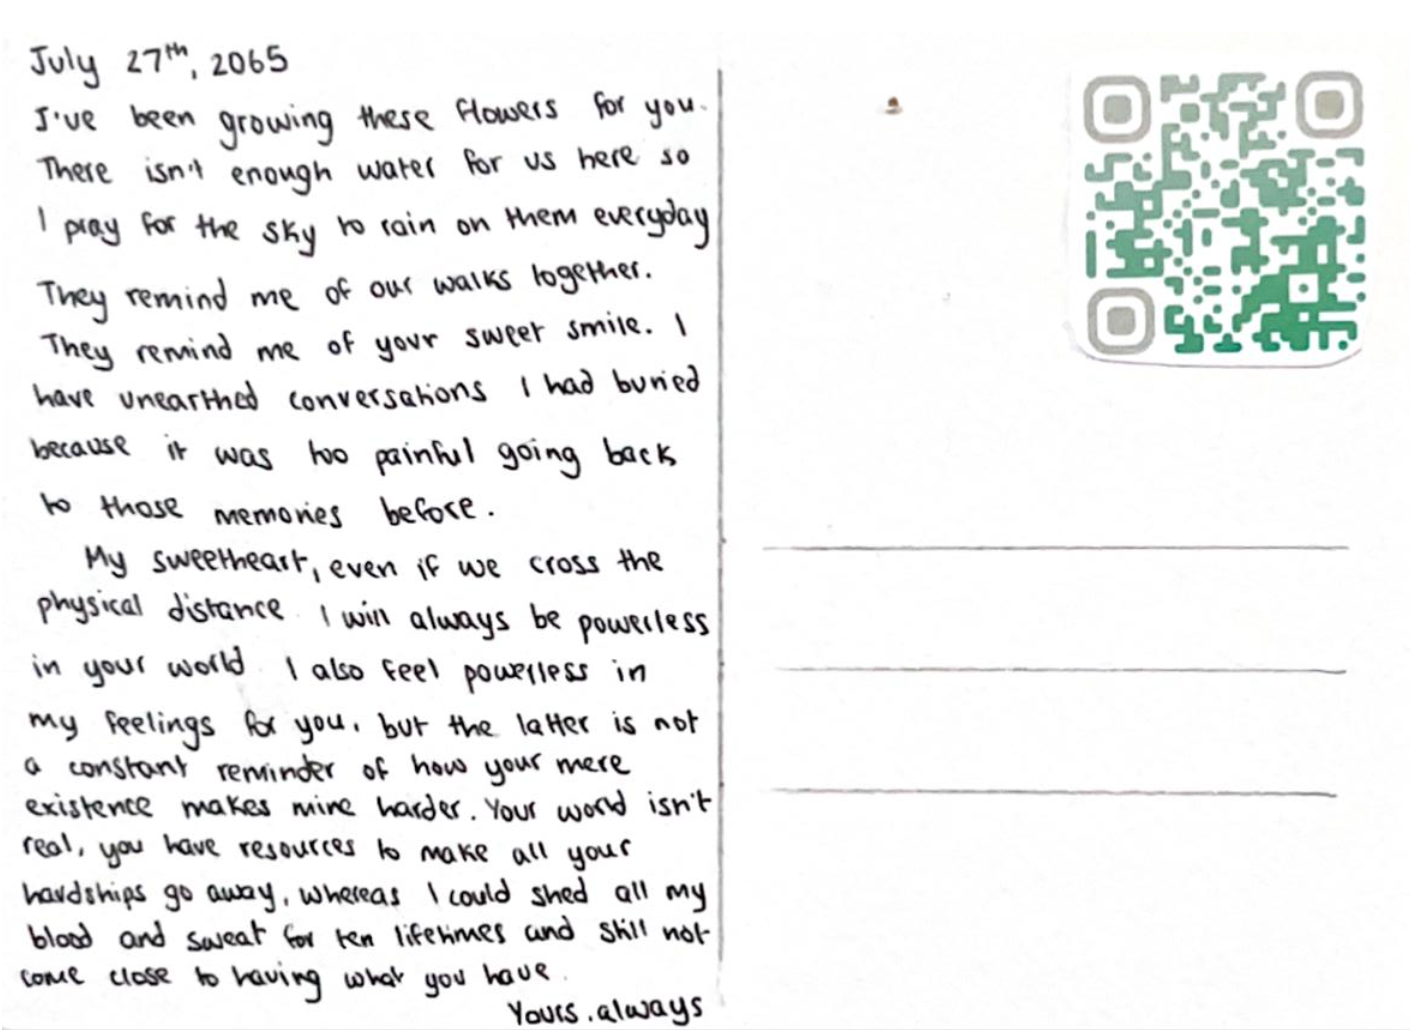 July 27th, 2065
I've been growing these flowers for you.
There isn't enough water for us here so
I pray for the sky to rain on them everyday
They remind me of our walks together.
They remind me of your sweet smile. I
have unearthed conversations I had buried
because it was too painful going back
to those memories before.
My sweetheart, even if we cross the
physical distance I will always be powerless
in your world I also feel powerless in
my feelings for you, but the latter is not
a constant reminder of how your mere
existence makes mine harder. Your world isn't
real, you have resources to make all your
hardships go away, whereas I could shed all my
blood and sweat for ten lifetimes and still not
come close to having what you have.
Yours, always